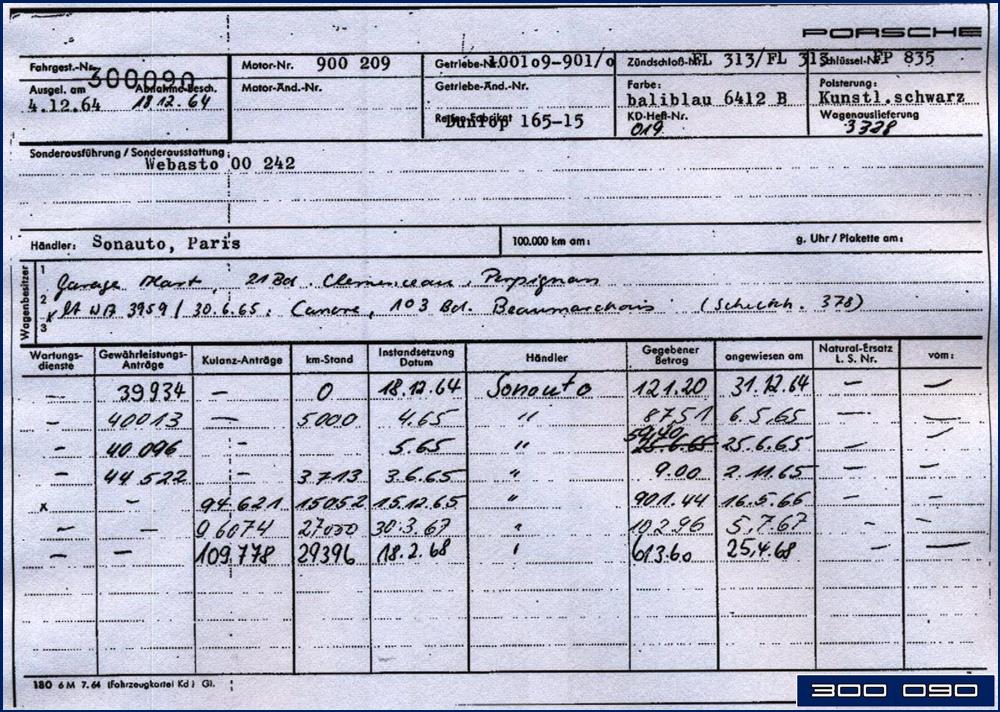 PORSCHE
Fahrgest.-Nr. 300090 Motor-Nr. 900 209 Getriebe-Nr. 100109-901/0 Zündschloß-Nr. FL 313/FL 313 Schlüssel-Nr. FP 835
Ausgel. am 4.12.64 Abnahme-Besch. 18 12. 64 Motor-Änd.-Nr. Getriebe-Änd.-Nr. Farbe: baliblau 6412 B Polsterung: Kunstl.schwarz
Reifen-Fabrikat Dunlop 165-15 KD-Heft-Nr. 019 Wagenauslieferung 3328
Sonderausführung / Sonderausstattung: Webasto 00 242
Händler: Sonauto, Paris 100.000 km am: g. Uhr / Plakette am:
Wagenbesitzer
1 Garage 21 Bd. Clemenceau, Perpignan
2 lt WA 3959 / 30.6.65: 103 Bd. Beaumarchais (Scheckh. 378)
3
Wartungsdienste Gewährleistungs-Anträge Kulanz-Anträge km-Stand Instandsetzung Datum Händler Gegebener Betrag angewiesen am Natural-Ersatz L. S. Nr. vom:
– 39934 – 0 18.12.64 Sonauto 121.20 31.12.64 – –
– 40013 – 5000 4.65 " 87.51 6.5.65 – –
– 40096 – 5.65 " 59.40 25.6.65 25.6.65 – –
– 44522 – 3713 3.6.65 " 9.00 2.11.65 – –
x – 94621 15052 15.12.65 " 901.44 16.5.66 – –
– – 96074 27000 30.3.67 " 102.96 5.7.67 – –
– – 109.778 29396 18.2.68 " 613.60 25.4.68 – –
180 6 M 7. 64 (Fahrzeugkartei Kd) Gl.
300 090